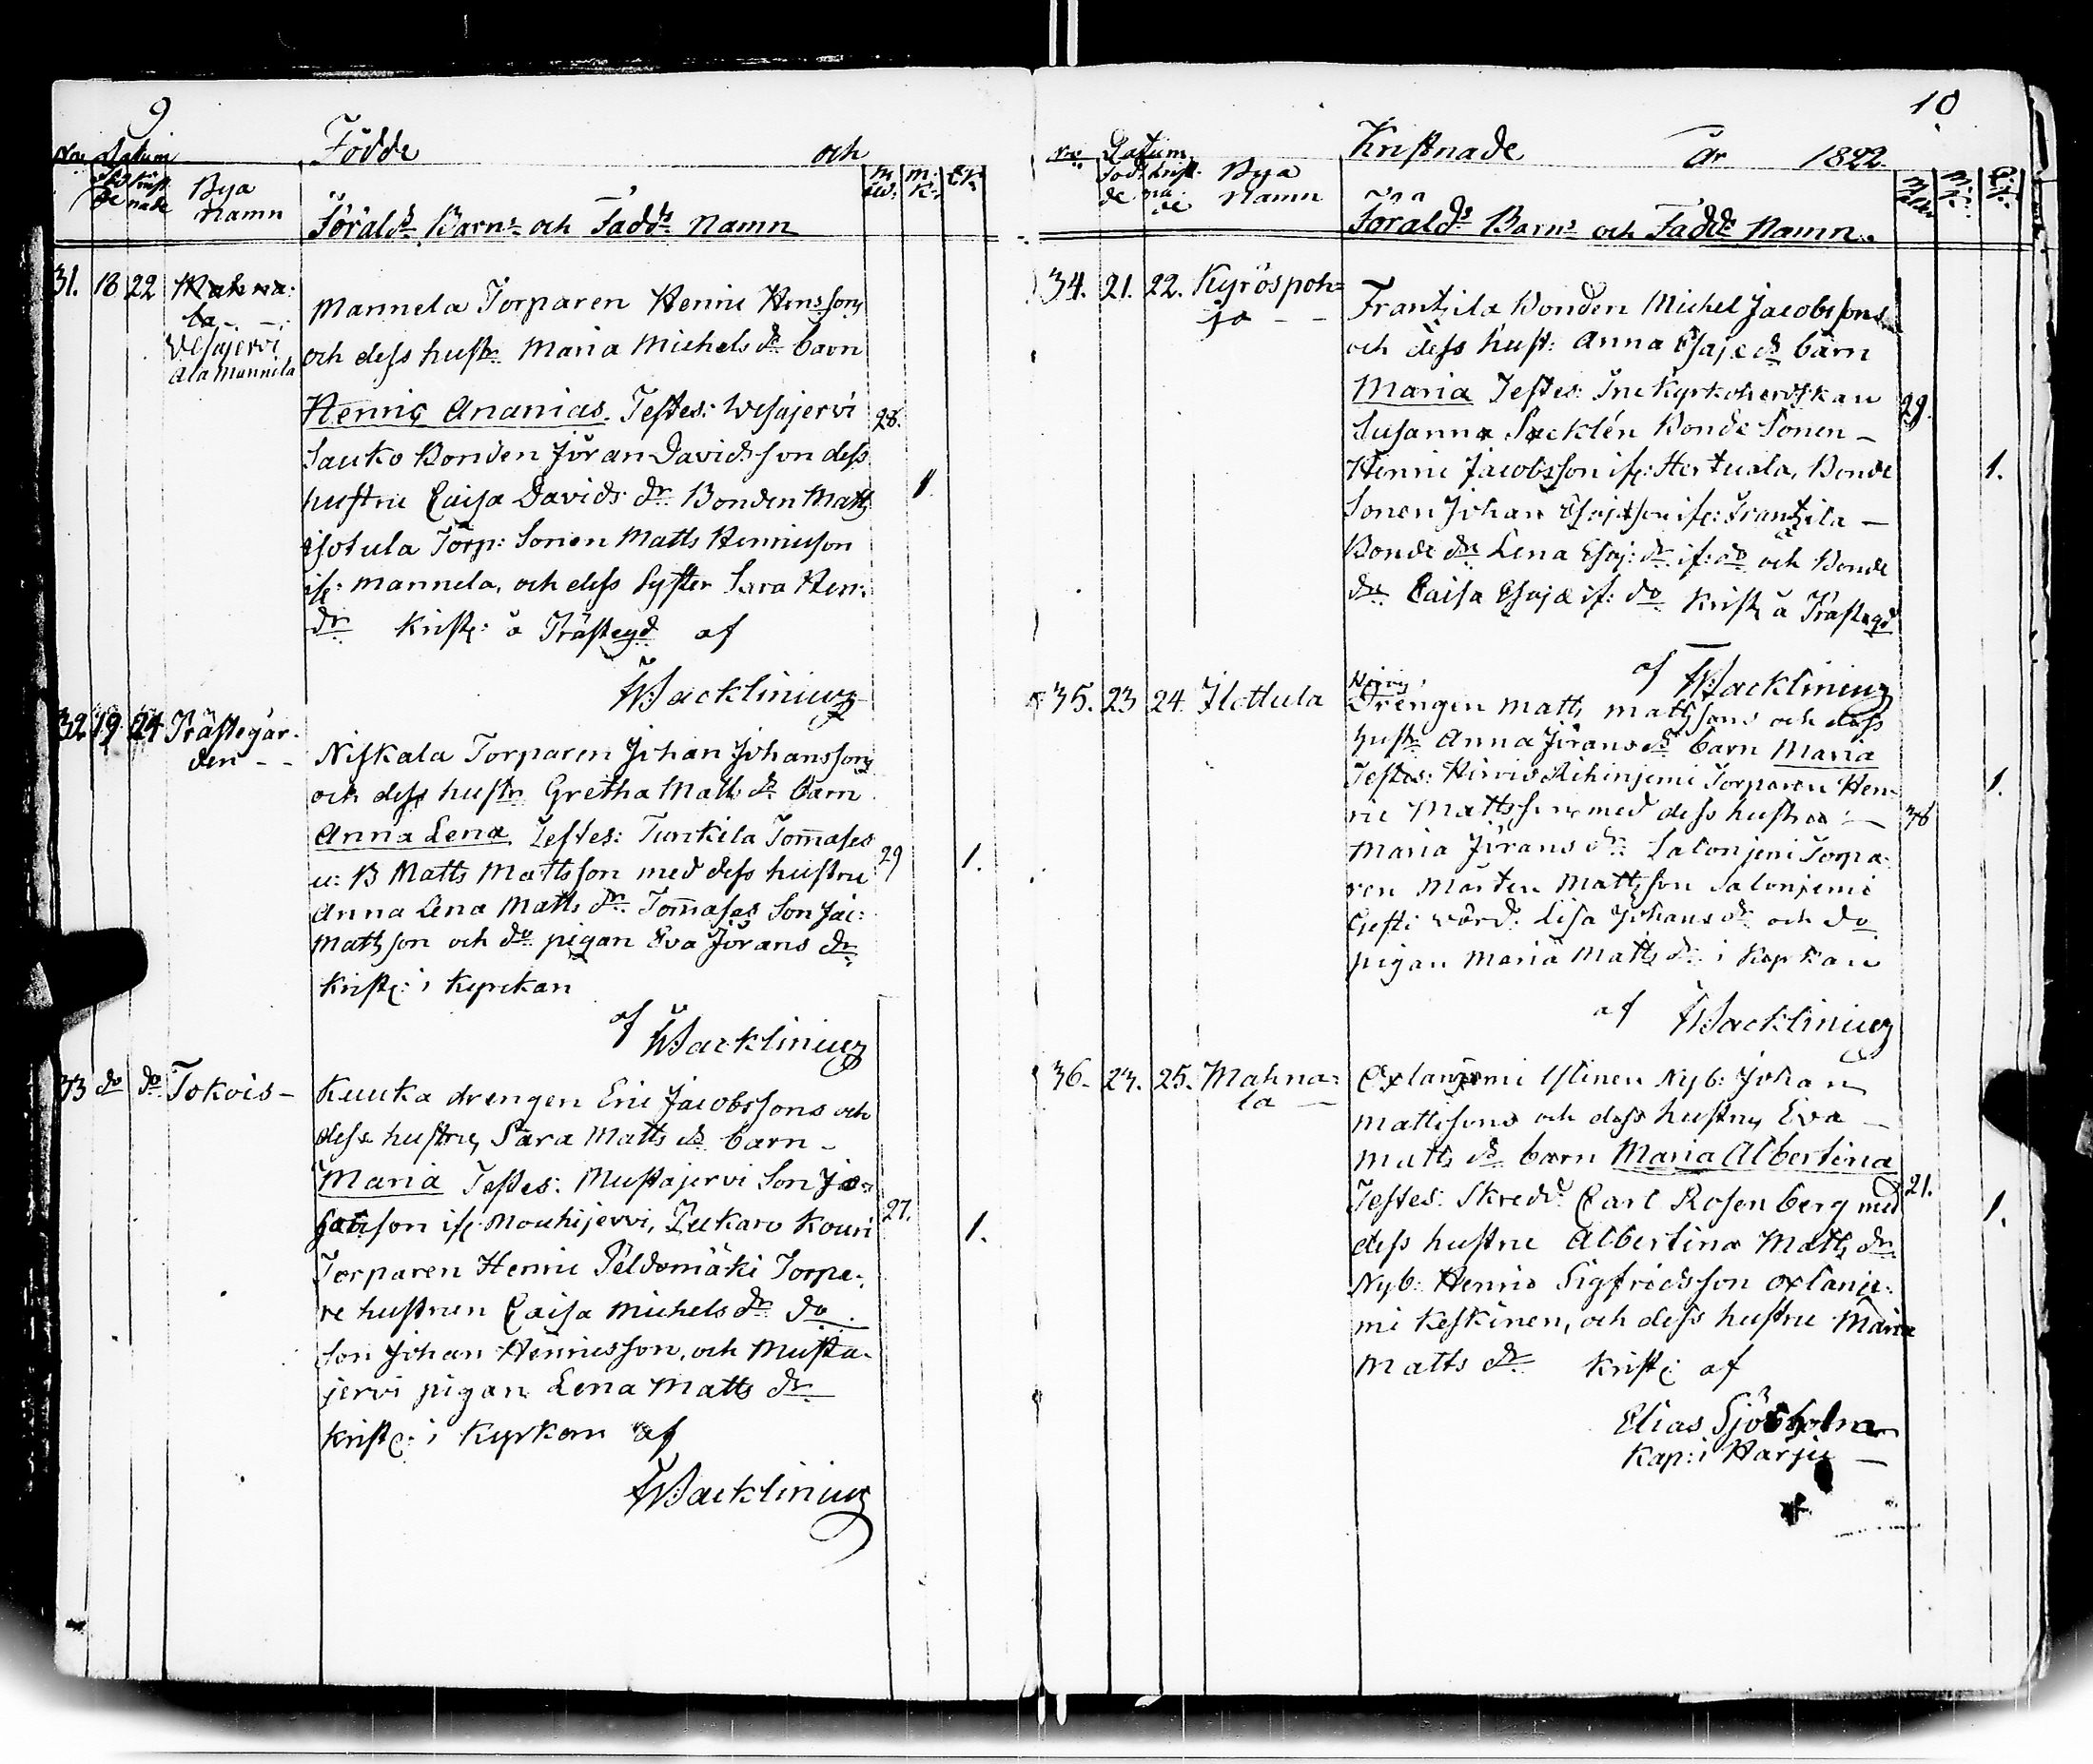 9
Födde och
No Datum
Föd de Krist nade Bya Namn Föräld:s Barn:s och Fadd:s Namn M åld: M: K: Q: K:
31. 18 22 Mahna:
la - -
Wesajervi
Ala Mannila
Mannela Torparen Henric Henssons
och dess hustr Maria Michels dr barn
Henric Ananias. Testes: Wesajervi 28.
Sauko Bonden Jöran Davidsson dess
hustru Caisa Davids dr Bonden Matts 1
Isotula Torp: Sonen Matts Henricsson
ifr: Mannela, och dess Syster Sara Hen:
dr Krist: å Prästegd af
Wacklinius
32 19 24 Prästegår-
den - -
Niskala Torparen Johan Johanssons
och dess hustr Gretha Matts dr barn
Anna Lena Testes: Turkila Tom̄ases
u: B Matts Mattsson med dess hustru 29 1.
Anna Lena Matts dr. Tom̄ases Son Jac:
Mattsson och do pigan Eva Jörans dr
Krist: i Kyrckan
af Wacklinius
33 do do Tokois -
Kuuka drengen Eric Jacobssons och
dess hustru Sara Matts dr barn -
Maria Testes: Mustajervi Son
ifr Mouhijervi, Kouri 27. 1.
Torparen Henric Peldomäki Torpa:
re hustrun Caisa Michels dr do
Son Johan Henricsson, och Musta-
jervi pigan Lena Matts dr
Krist: i Kyrkan af
Wacklinius
10
Kristnade År 1822.
No Datum
Föd de Krist na de Bya Namn Föräld:s Barn:s och Fadd:s Namn. M ålder M: K: Q: K:
34. 21. 22. Kyröspoh=
ja - -
Frantzila Bonden Michel Jacobssons
och dess hust: Anna Esaje dr barn
Maria Testes: Kyrkoherdskan 29.
Susanna Bonde Sonen -
Henric Jacobsson ifr: Hertuala, Bonde 1.
Sonen Johan Esajesson ifr: Frantzila -
Bonde dr Lena Esaj: dr if: do och Bonde
dr Caisa Esajæ if: do Krist å Prästegd
af Wacklinius
35. 23 24. Jlottula
Hirvis
Drengen Matts Mattssons och dess
hustr Anna Jörans dr barn Maria
Testes: Hirvis Torparen Hen- 1.
ric Mattsson med dess hustru - 38
Maria Jörans dr. Salonjemi Torpa-
ren Mårten Mattsson Salonjemi
Gestg: värd: Lisa Johans dr och do
pigan Maria Matts dr i Kyrkan
af Wacklinius
36. 23. 25. Mahna=
la -
Oxlanjemi Ylinen Nyb: Johan
Mattssons och dess hustru Eva -
Matts dr barn Maria Albertina 21.
Testes: Skredd: Carl Rosenberg med 1.
dess hustru Albertina Matts dr
Nyb: Henric Sigfridsson Oxlanje-
mi Keskinen, och dess hustru Maria
Matts dr Krist: af
Elias Sjöholm
Kap: i Harju -